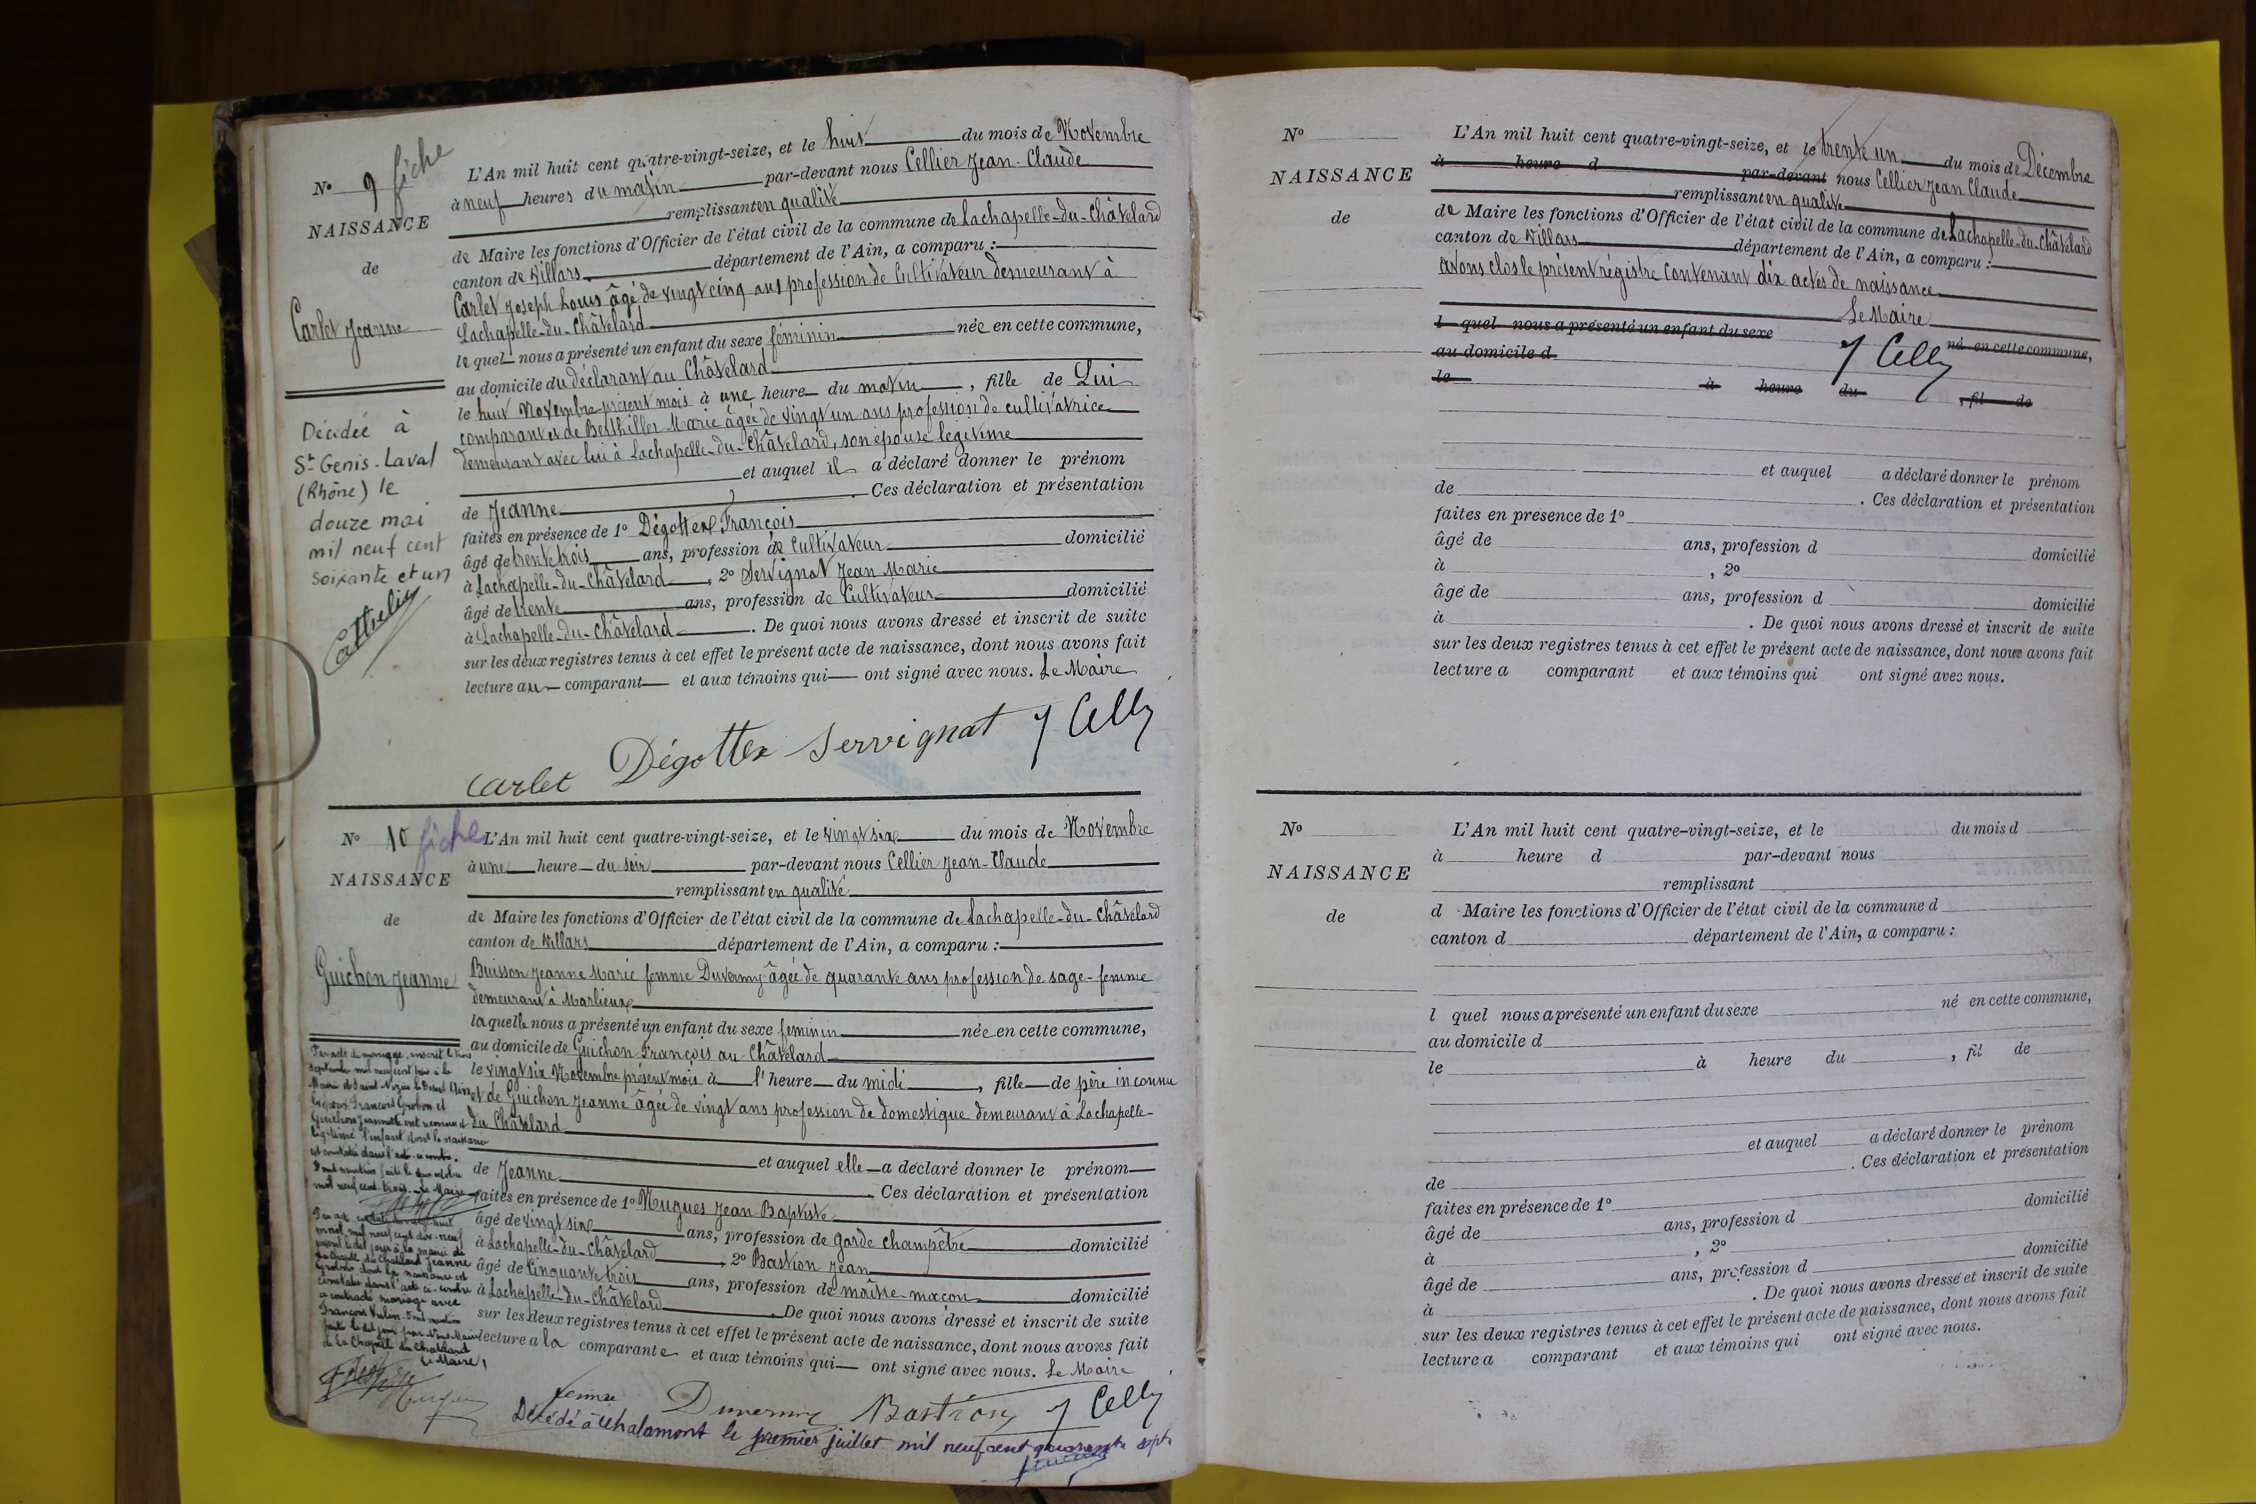 N° 9 fiche
NAISSANCE
de
Carlet Jeanne
Décédée à
St Genis-Laval
(Rhône) le
douze mai
mil neuf cent
soixante et un
L'An mil huit cent quatre-vingt-seize, et le huit du mois de Novembre
à neuf heures du matin par-devant nous Cellier Jean-Claude
remplissant en qualité
de Maire les fonctions d'Officier de l'état civil de la commune de Lachapelle-du-Châtelard
canton de Villars département de l'Ain, a comparu :
Carlet Joseph Louis âgé de vingt cinq ans profession de Cultivateur demeurant à
Lachapelle-du-Châtelard
le quel nous a présenté un enfant du sexe féminin née en cette commune,
au domicile du déclarant au Châtelard
le huit Novembre présent mois à une heure du matin, fille de Lui
comparant et de Berthillet Marie âgée de vingt un ans profession de cultivatrice
demeurant avec lui à Lachapelle-du-Châtelard, son épouse légitime
et auquel il a déclaré donner le prénom
de Jeanne. Ces déclaration et présentation
faites en présence de 1° Dégottex François
âgé de trente trois ans, profession de Cultivateur domicilié
à Lachapelle-du-Châtelard, 2° Servignat Jean Marie
âgé de trente ans, profession de Cultivateur domicilié
à Lachapelle-du-Châtelard. De quoi nous avons dressé et inscrit de suite
sur les deux registres tenus à cet effet le présent acte de naissance, dont nous avons fait
lecture au comparant et aux témoins qui ont signé avec nous. Le Maire
Carlet Dégottex Servignat J Celly
N° 10 fiche
NAISSANCE
de
Guichon Jeanne
Par acte de mariage inscrit le trois
septembre mil neuf cent trois à la
Mairie de Saint-Nizier le Désert
les époux François Grobon et
Guichon Jeannette ont reconnu et
légitimé l'enfant dont la naissance
est constatée dans l'acte ci-contre.
mil neuf cent trois. Le Maire
mil neuf cent dix-neuf
à la mairie de
La Chapelle du Chatelard Jeanne
Grobon dont la naissance est
constatée dans l'acte ci-contre
a contracté mariage avec
François
de La Chapelle du Chatelard
Le Maire,
L'An mil huit cent quatre-vingt-seize, et le vingt six du mois de Novembre
à une heure du soir par-devant nous Cellier Jean-Claude
remplissant en qualité
de Maire les fonctions d'Officier de l'état civil de la commune de Lachapelle-du-Châtelard
canton de Villars département de l'Ain, a comparu :
Buisson Jeanne Marie femme Duvernay âgée de quarante ans profession de sage-femme
demeurant à Marlieux
laquelle nous a présenté un enfant du sexe féminin née en cette commune,
au domicile de Guichon François au Châtelard
le vingt six Novembre présent mois à l'heure du midi, fille de père inconnu
et de Guichon Jeanne âgée de vingt ans profession de domestique demeurant à Lachapelle-
du Châtelard
et auquel elle a déclaré donner le prénom
de Jeanne. Ces déclaration et présentation
faites en présence de 1° Hugues Jean Baptiste
âgé de vingt six ans, profession de garde champêtre domicilié
à Lachapelle-du-Châtelard, 2° Bastion Jean
âgé de cinquante trois ans, profession de maître-maçon domicilié
à Lachapelle-du-Châtelard. De quoi nous avons dressé et inscrit de suite
sur les deux registres tenus à cet effet le présent acte de naissance, dont nous avons fait
lecture a la comparante et aux témoins qui ont signé avec nous. Le Maire
femme Duvernay Bastion J Celly
Décédé à Chalamont le premier juillet mil neuf cent quarante sept
N°
NAISSANCE
de
L'An mil huit cent quatre-vingt-seize, et le trente un du mois de Décembre
à heure d par-devant nous Cellier Jean Claude
remplissant en qualité
de Maire les fonctions d'Officier de l'état civil de la commune de Lachapelle-du-Châtelard
canton de Villars département de l'Ain, a comparu :
avons clos le présent régistre contenant dix actes de naissance
Le Maire
l quel nous a présenté un enfant du sexe né en cette commune,
au domicile d J Celly
le à heure du, fil de
et auquel a déclaré donner le prénom
de. Ces déclaration et présentation
faites en présence de 1°
âgé de ans, profession d domicilié
à, 2°
âgé de ans, profession d domicilié
à. De quoi nous avons dressé et inscrit de suite
sur les deux registres tenus à cet effet le présent acte de naissance, dont nous avons fait
lecture a comparant et aux témoins qui ont signé avec nous.
N°
NAISSANCE
de
L'An mil huit cent quatre-vingt-seize, et le du mois d
à heure d par-devant nous
remplissant
d Maire les fonctions d'Officier de l'état civil de la commune d
canton d département de l'Ain, a comparu :
l quel nous a présenté un enfant du sexe né en cette commune,
au domicile d
le à heure du, fil de
et auquel a déclaré donner le prénom
de. Ces déclaration et présentation
faites en présence de 1°
âgé de ans, profession d domicilié
à, 2°
âgé de ans, profession d domicilié
à. De quoi nous avons dressé et inscrit de suite
sur les deux registres tenus à cet effet le présent acte de naissance, dont nous avons fait
lecture a comparant et aux témoins qui ont signé avec nous.